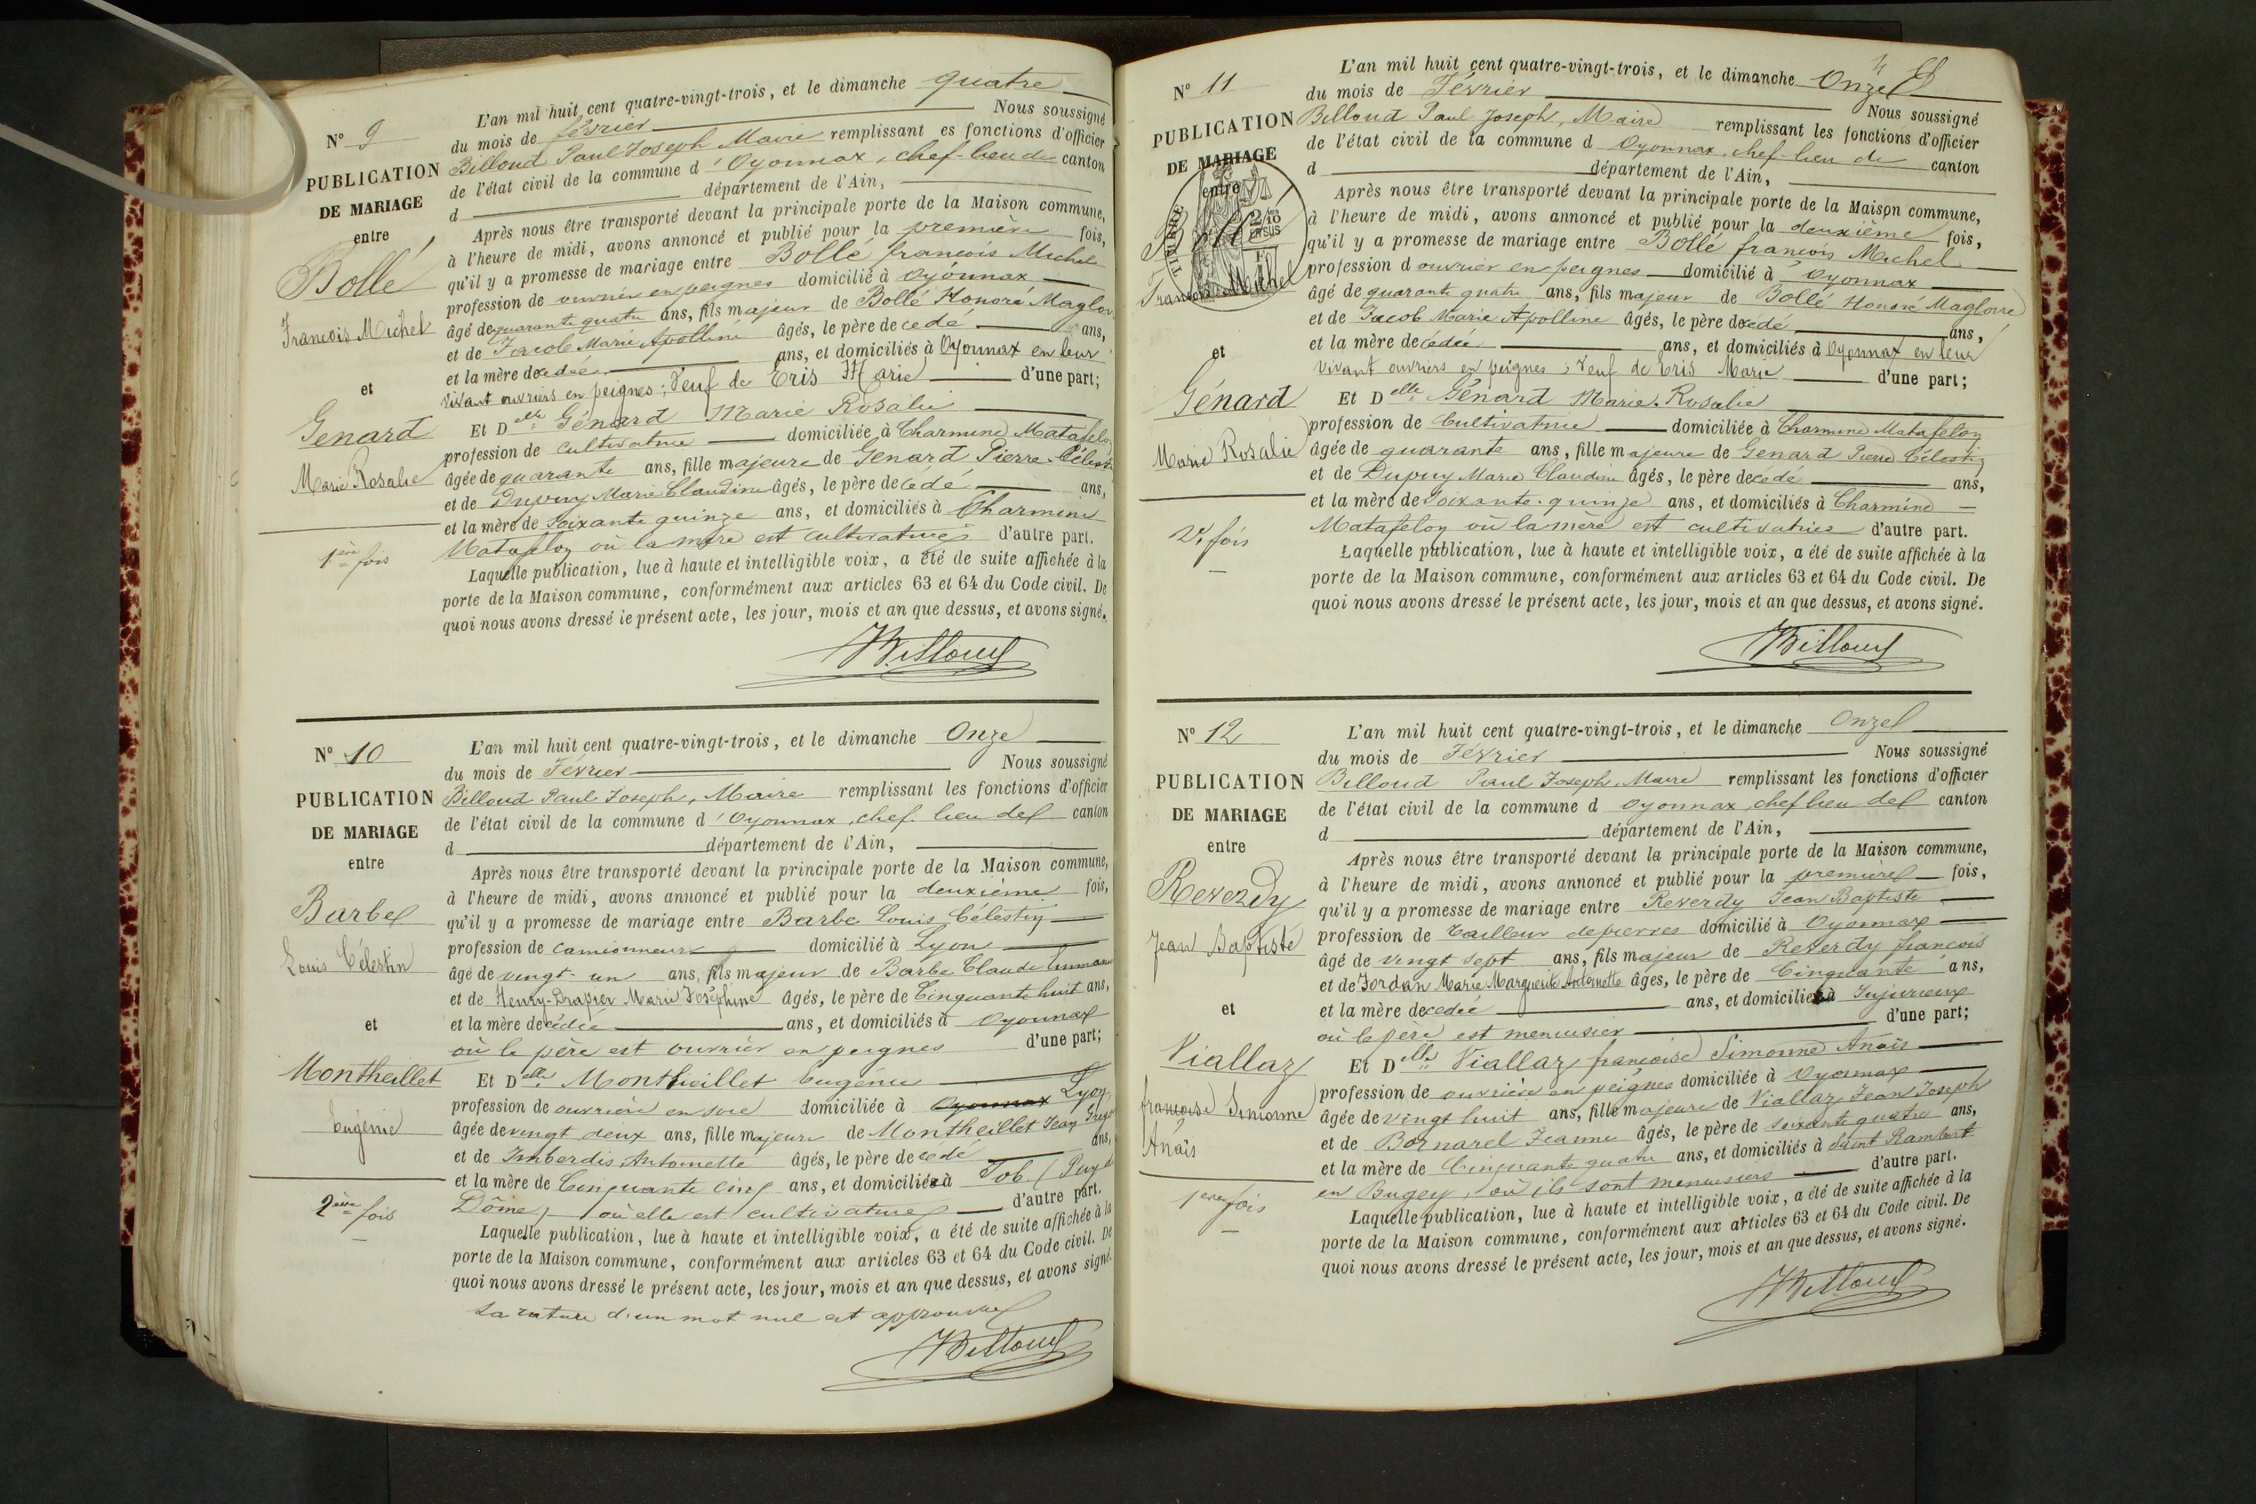 N° 9
PUBLICATION
DE MARIAGE
entre
Bollé
François Michel
et
Genard
Marie Rosalie
1ère fois
L'an mil huit cent quatre-vingt-trois, et le dimanche quatre
du mois de février Nous soussigné
Billoud Paul Joseph Maire remplissant es fonctions d'officier
de l'état civil de la commune d'Oyonnax, chef-lieu de canton
d département de l'Ain,
Après nous être transporté devant la principale porte de la Maison commune,
à l'heure de midi, avons annoncé et publié pour la première fois,
qu'il y a promesse de mariage entre Bollé françois Michel
profession de ouvrier en peignes domicilié à Oyonnax
âgé de quarante quatre ans, fils majeur de Bollé Honoré Magloir
et de Jacob Marie Apolline âgés, le père de cedé ans,
et la mère decedée ans, et domiciliés à Oyonnax en leur
vivant ouvriers en peignes; Veuf de Eris Marie d'une part;
Et Delle Génard Marie Rosalie
profession de cultivatrice domiciliée à Charmine Matafelon
âgée de quarante ans, fille majeure de Genard Pierre Célest
et de Dupuy Marie Claudine âgés, le père de cédé ans,
et la mère de soixante quinze ans, et domiciliés à Charmine
Matafelon où la mère est cultivatrice d'autre part.
Laquelle publication, lue à haute et intelligible voix, a été de suite affichée à la
porte de la Maison commune, conformément aux articles 63 et 64 du Code civil. De
quoi nous avons dressé le présent acte, les jour, mois et an que dessus, et avons signé.
Billoud
N° 10
PUBLICATION
DE MARIAGE
entre
Barbe
Louis Célestin
et
Montheillet
Eugénie
2ème fois
L'an mil huit cent quatre-vingt-trois, et le dimanche Onze
du mois de Février Nous soussigné
Billoud Paul Joseph, Maire remplissant les fonctions d'officier
de l'état civil de la commune d'Oyonnax, chef-lieu de canton
d département de l'Ain,
Après nous être transporté devant la principale porte de la Maison commune,
à l'heure de midi, avons annoncé et publié pour la deuxième fois,
qu'il y a promesse de mariage entre Barbe Louis Célestin
profession de camionneur domicilié à Lyon
âgé de vingt-un ans, fils majeur de Barbe Claude
et de Henry-Drapier Marie Joséphine âgés, le père de Cinquante huit ans,
et la mère decédée ans, et domiciliés à Oyonnax
où le père est ouvrier en peignes d'une part;
Et Delle Montheillet Eugénie
profession de ouvrière en soie domiciliée à Oyonnax Lyon
âgée de vingt deux ans, fille majeure de Montheillet Jean
et de Imberdis Antoinette âgés, le père de cedé ans,
et la mère de Cinquante cinq ans, et domiciliée à Job (Puy de
Dôme) où elle est cultivatrice d'autre part.
Laquelle publication, lue à haute et intelligible voix, a été de suite affichée à la
porte de la Maison commune, conformément aux articles 63 et 64 du Code civil. De
quoi nous avons dressé le présent acte, les jour, mois et an que dessus, et avons signé.
La rature d'un mot nul est approuvée
Billoud
4
N° 11
PUBLICATION
DE MARIAGE
entre
TIMBRE
2/10 EN SUS
Bollé
François Michel
et
Génard
Marie Rosalie
2e fois
L'an mil huit cent quatre-vingt-trois, et le dimanche Onze
du mois de Février Nous soussigné
Billoud Paul Joseph, Maire remplissant les fonctions d'officier
de l'état civil de la commune d Oyonnax, chef-lieu de canton
d département de l'Ain,
Après nous être transporté devant la principale porte de la Maison commune,
à l'heure de midi, avons annoncé et publié pour la deuxième fois,
qu'il y a promesse de mariage entre Bollé françois Michel
profession d ouvrier en peignes domicilié à Oyonnax
âgé de quarante quatre ans, fils majeur de Bollé Honoré Magloire
et de Jacob Marie Apolline âgés, le père decédé ans,
et la mère decédée ans, et domiciliés à Oyonnax en leur
vivant ouvriers en peignes; Veuf de Eris Marie d'une part;
Et Delle Génard Marie Rosalie
profession de Cultivatrice domiciliée à Charmine Matafelon
âgée de quarante ans, fille majeure de Genard Pierre Célestin
et de Dupuy Marie Claudine âgés, le père decédé ans,
et la mère de soixante-quinze ans, et domiciliés à Charmine
Matafelon où la mère est cultivatrice d'autre part.
Laquelle publication, lue à haute et intelligible voix, a été de suite affichée à la
porte de la Maison commune, conformément aux articles 63 et 64 du Code civil. De
quoi nous avons dressé le présent acte, les jour, mois et an que dessus, et avons signé.
Billoud
N° 12
PUBLICATION
DE MARIAGE
entre
Reverdy
Jean Baptiste
et
Viallaz
françoise Simonne
Anaïs
1ère fois
L'an mil huit cent quatre-vingt-trois, et le dimanche Onze
du mois de Février Nous soussigné
Billoud Paul Joseph, Maire remplissant les fonctions d'officier
de l'état civil de la commune d Oyonnax, chef lieu de canton
d département de l'Ain,
Après nous être transporté devant la principale porte de la Maison commune,
à l'heure de midi, avons annoncé et publié pour la première fois,
qu'il y a promesse de mariage entre Reverdy Jean Baptiste
profession de tailleur de pierres domicilié à Oyonnax
âgé de vingt sept ans, fils majeur de Reverdy françois
et de Jordan Marie Marguerite Antoinette âgés, le père de Cinquante ans,
et la mère decedée ans, et domicilié à Jujurieux
où le père est menuisier d'une part;
Et Delle Viallaz françoise Simonne Anaïs
profession de ouvrière en peignes domiciliée à Oyonnax
âgée de vingt huit ans, fille majeure de Viallaz Jean Joseph
et de Bornarel Jeanne âgés, le père de soixante quatre ans,
et la mère de Cinquante quatre ans, et domiciliés à Saint Rambert
en Bugey, où ils sont menuisiers d'autre part.
Laquelle publication, lue à haute et intelligible voix, a été de suite affichée à la
porte de la Maison commune, conformément aux articles 63 et 64 du Code civil. De
quoi nous avons dressé le présent acte, les jour, mois et an que dessus, et avons signé.
Billoud